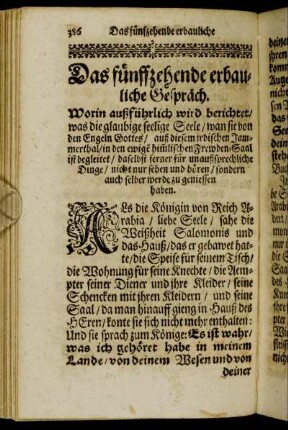 386 Das fünffzehende erbauliche
Das fünffzehende erbau-
liche Gespräch.
Worin außführlich wird berichtet/
was die glaubige seelige Seele/ wan sie von
den Engeln Gottes/ aus diesem irdischen Jam-
merthal/ in den ewigē himlischen Frewden-Saal
ist begleitet/ daselbst ferner für unaußsprechliche
Dinge/ nicht nur sehen und hören/ sondern
auch selber werde zu geniessen
haben.
ALs die Königin von Reich A-
rabia/ liebe Seele/ sahe die
Weißheit Salomonis und
das Hauß/ das er gebawet hat-
te/ die Speise für seinem Tisch/
die Wohnung für seine Knechte/ die Aem-
pter seiner Diener und ihre Kleider/ seine
Schencken mit ihren Kleidern/ und seine
Saal/ da man hinauff gieng in Hauß des
HEren/ konte sie sich nicht mehr enthalten:
Und sie sprach zum Könige: Es ist wahr/
was ich gehöret habe in meinem
Lande/ von deinem Wesen und von
deiner